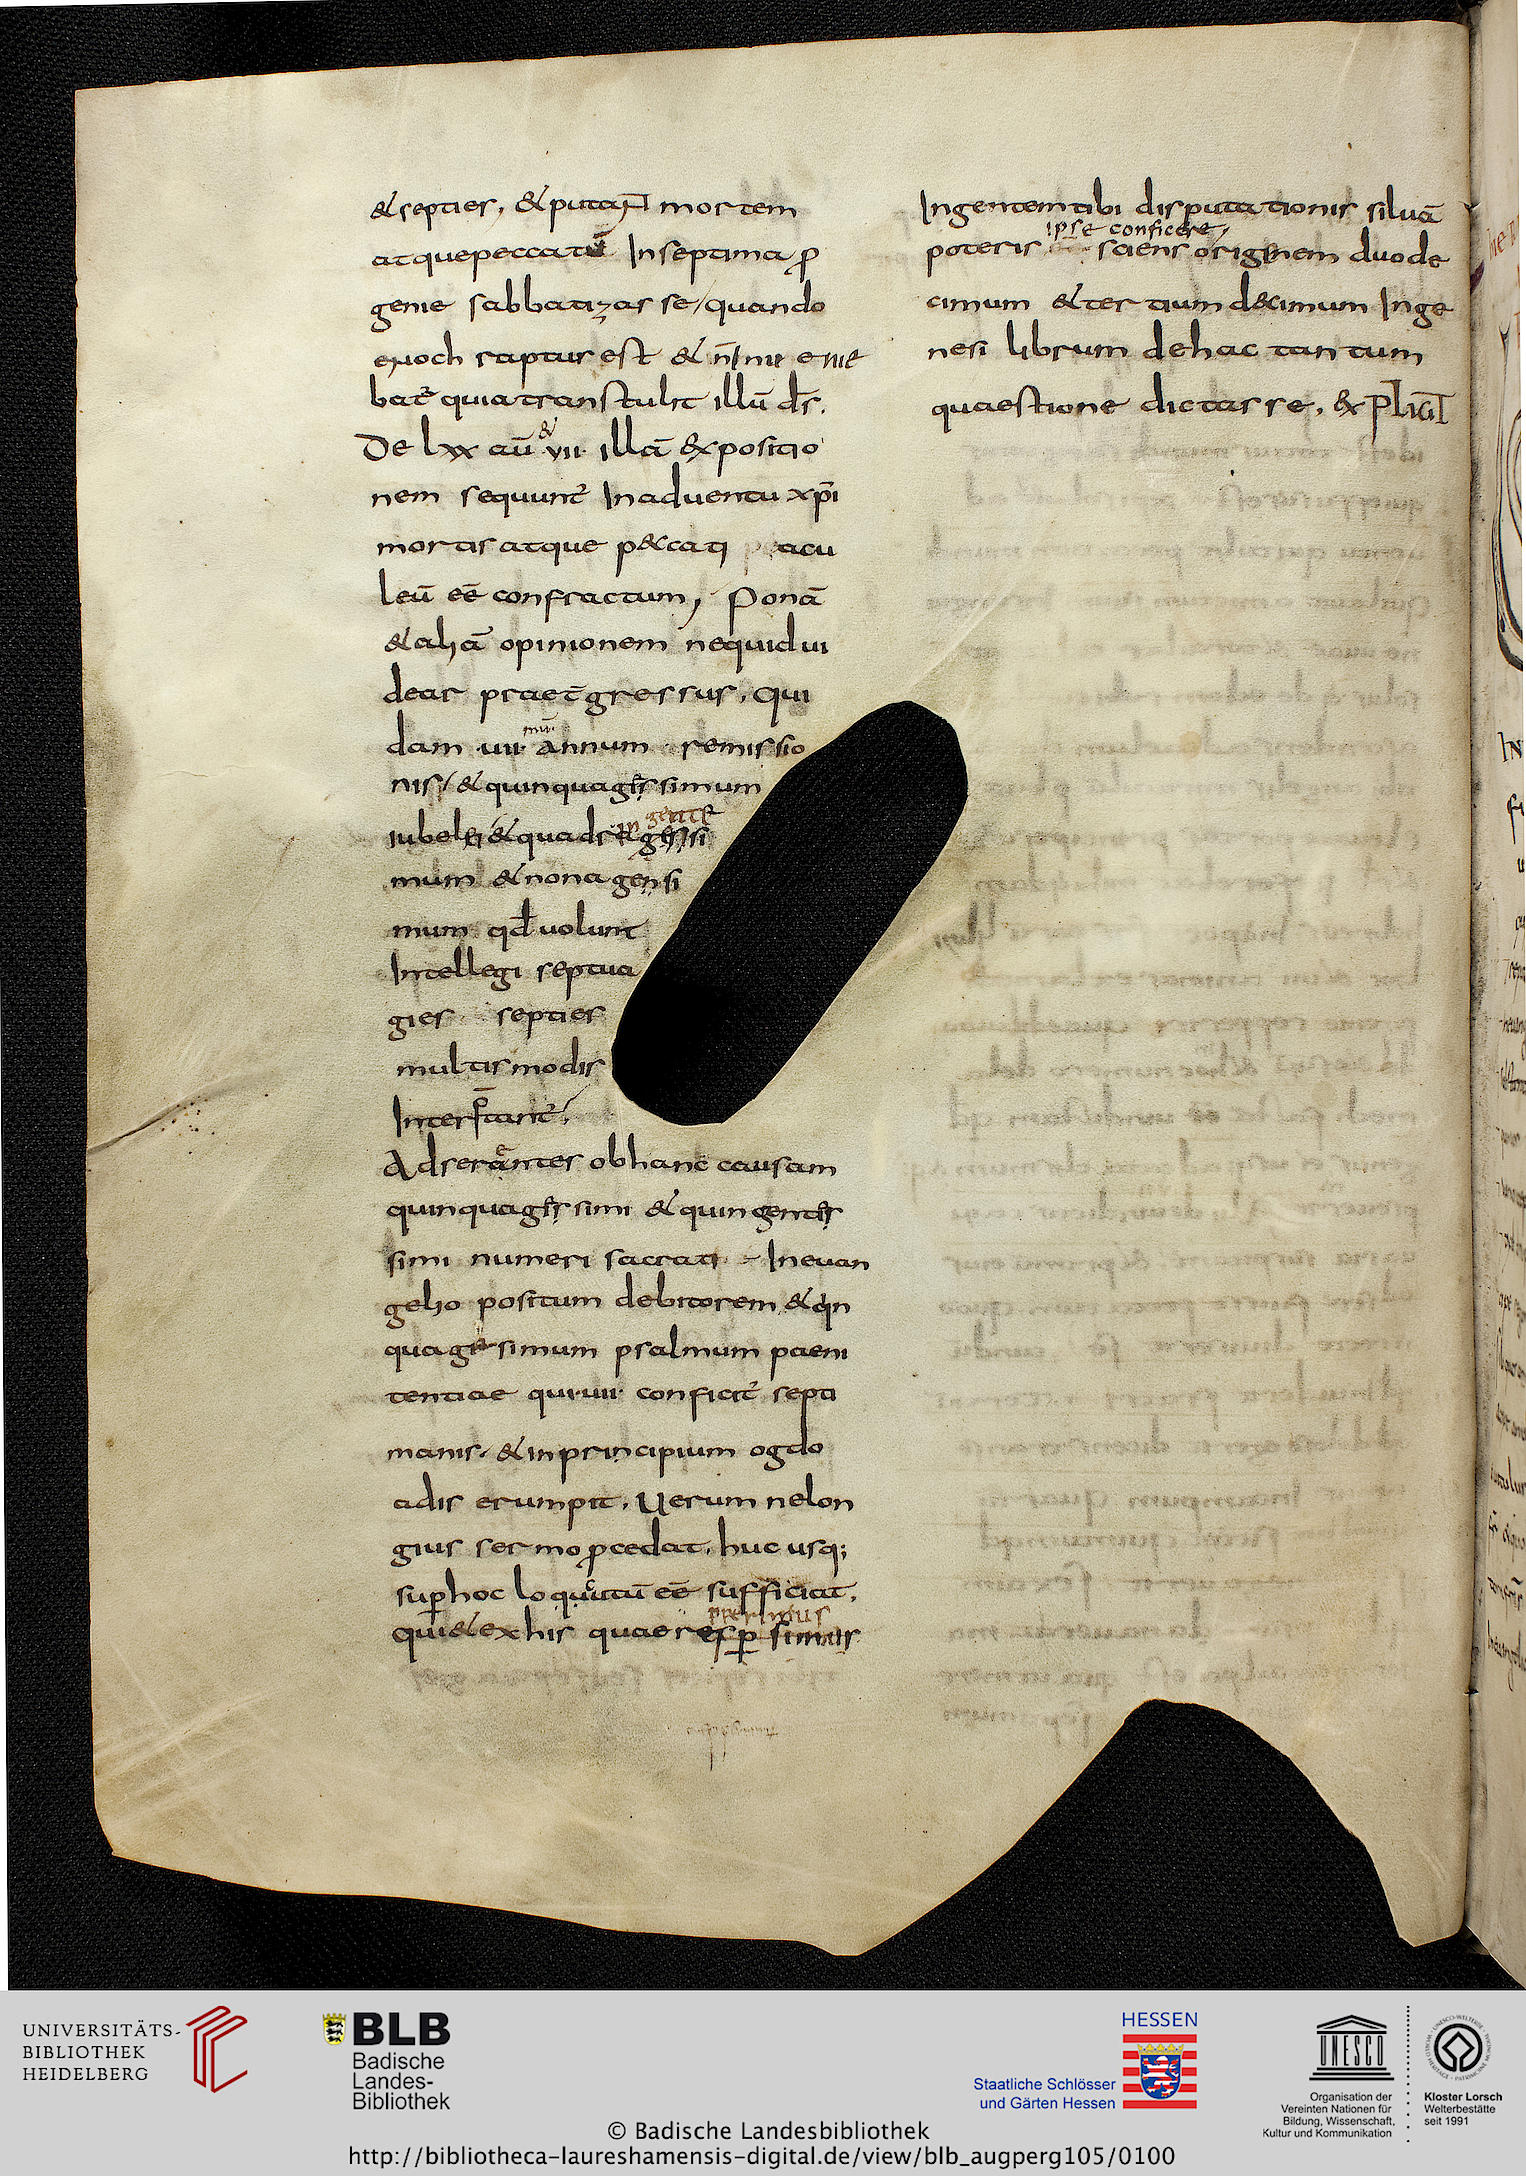 & septies, & putant̄ mortem
atque peccatū In septima p̱
genie sabbatizasse, quando
enoch raptus est & n̄ Inue enie
bat̄ quia transtulit illū d̄s.
De lxx aū & vii illā expositio
nem sequunt̄ In aduentu xp̄i
mortis atque peccati acu
leū eē confractum, Ponā
& aliā opinionem nequid ui
dear praet̄gressus, Qui
dam uii annum remissio
nis, & quinquagessimum
iubelei & quadringente
gessi
mum & nonagensi
mum qd̄ uolunt
Intellegi septua
gies septies
multis modis
Interp̄tant̄,
Adserentes ob hanc causam
quinquagessimi & quingentes
simi numeri sacrati In euan
gelio positum debitorem, & qin
quagesimum psalmum paeni
tentiae qui uii conficit̄ septi
manis, & in principium ogdo
adis erumpit, Uerum ne lon
gius sermo p̱cedat, huc usq;
sup̱ hoc loquutū eē sufficiat,
qui & ex his quae
Ingentem tibi disputationis siluā
ipse conficere,
poteris sciens originem duode
cimum & tertium decimum In ge
nesi librum de hac tantum
quaestione dictasse, & Pl̄iat̄
UNIVERSITÄTS-
BIBLIOTHEK
HEIDELBERG
BLB
Badische
Landes-
Bibliothek
HESSEN
Staatliche Schlösser
und Gärten Hessen
UNESCO
Organisation der
Vereinten Nationen für
Bildung, Wissenschaft,
Kultur und Kommunikation
Kloster Lorsch
Welterbestätte
seit 1991
© Badische Landesbibliothek
http://bibliotheca-laureshamensis-digital.de/view/blb_augperg105/0100